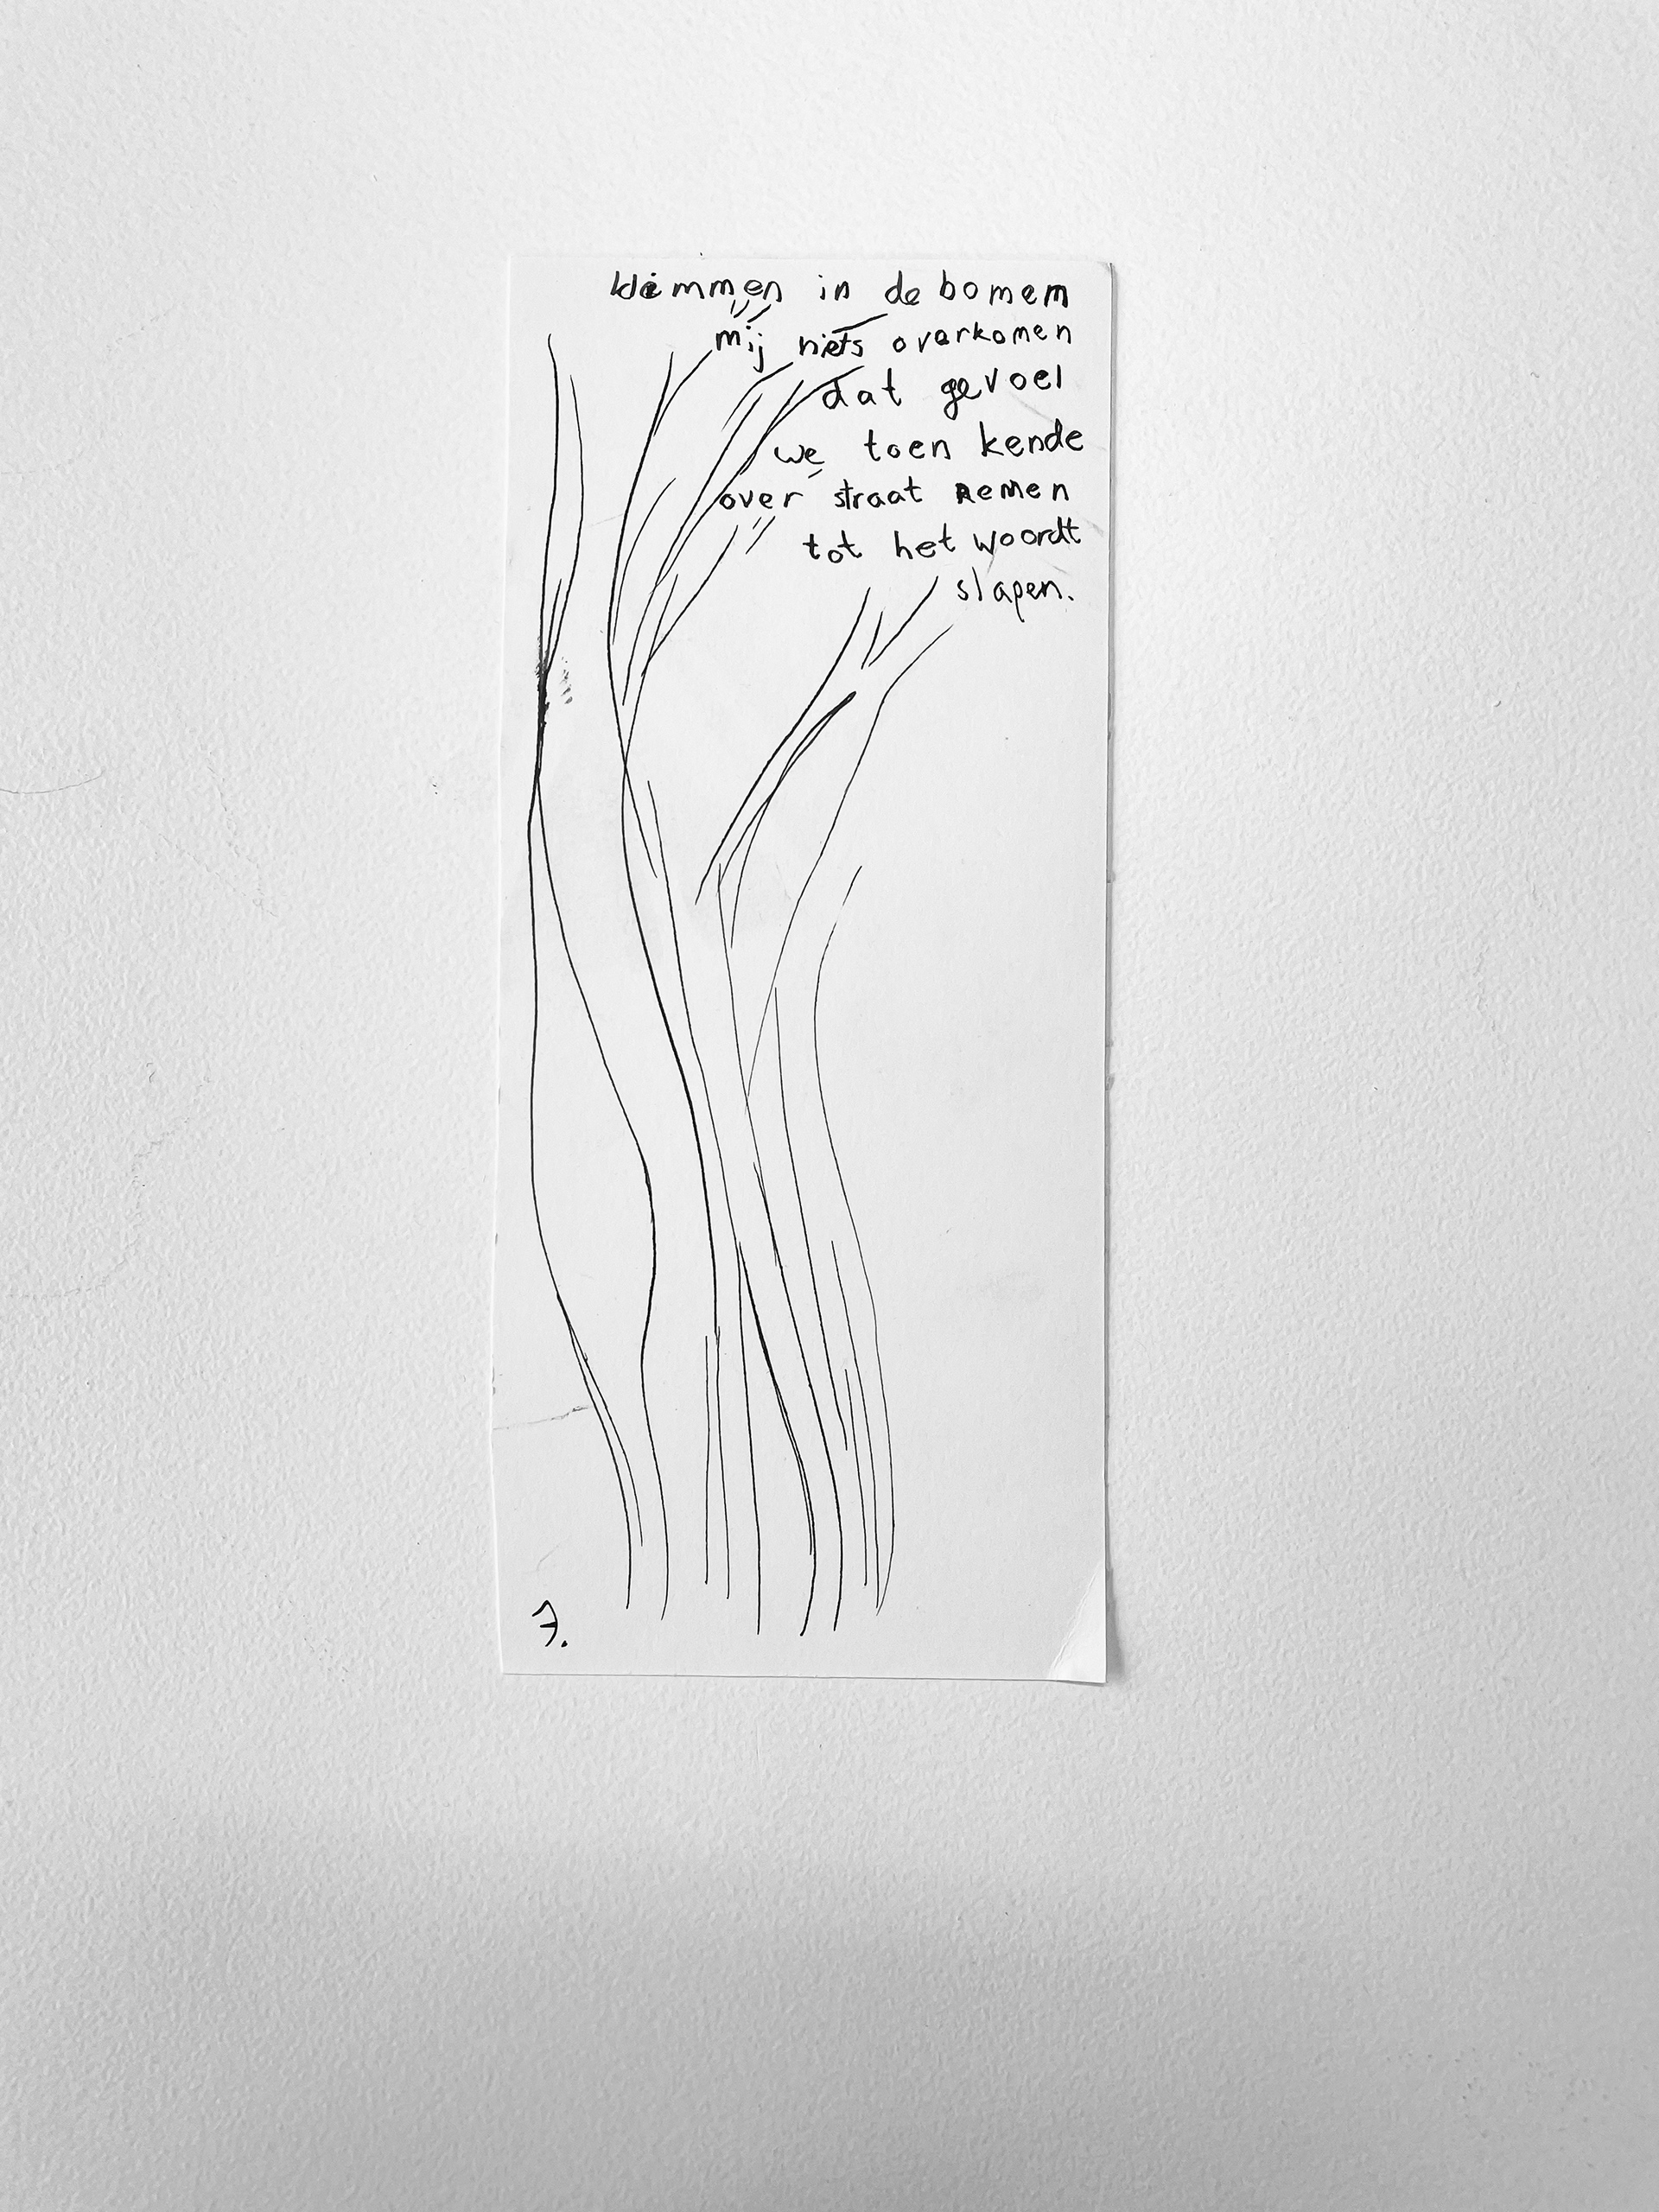 klimmen in de bomem
mij niets overkomen
dat gevoel
we toen kende
over straat remen
tot het woordt
slapen.
7.